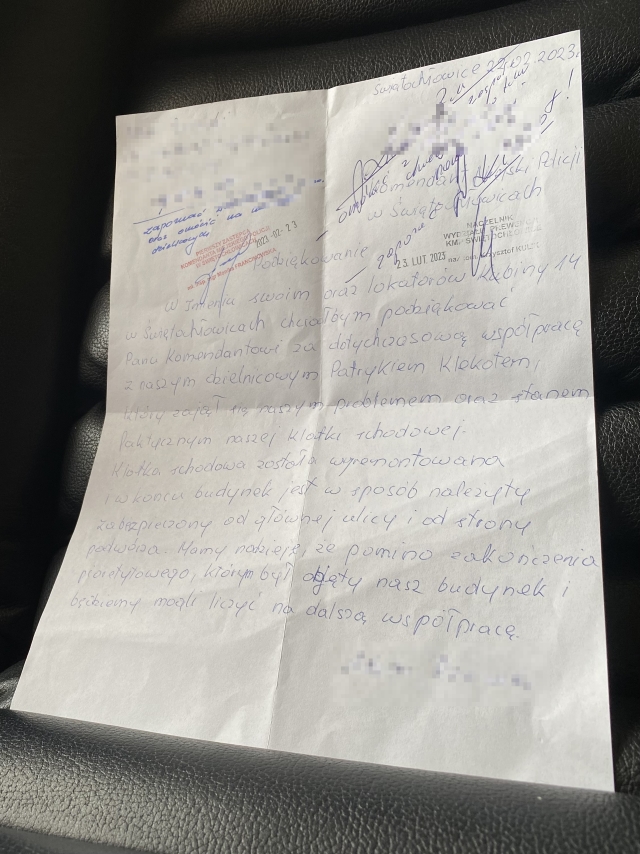 Świętochłowice 22.02.2023.
Komendant Miejski Policji
w Świętochłowicach
zapoznać
oraz omówić na
omówić z
2023-02-23
NACZELNIK
WYDZIAŁU PREWENCJI
KMP W ŚWIĘTOCHŁOWICACH
23 LUT 2023
Podziękowanie
W Imieniu swoim oraz lokatorów Kubiny 14
w Świętochłowicach chciałbym podziękować
Panu Komendantowi za dotychczasową współpracę
z naszym dzielnicowym Patrykiem Klokotem,
który zajął się naszym problemem oraz stanem
faktycznym naszej klatki schodowej.
Klatka schodowa została wyremontowana
i w końcu budynek jest w sposób należyty
zabezpieczony od głównej ulicy i od strony
podwórza. Mamy nadzieję, że pomimo zakończenia
piorietytowego, którym był objęty nasz budynek i
będziemy mogli liczyć na dalszą współpracę.